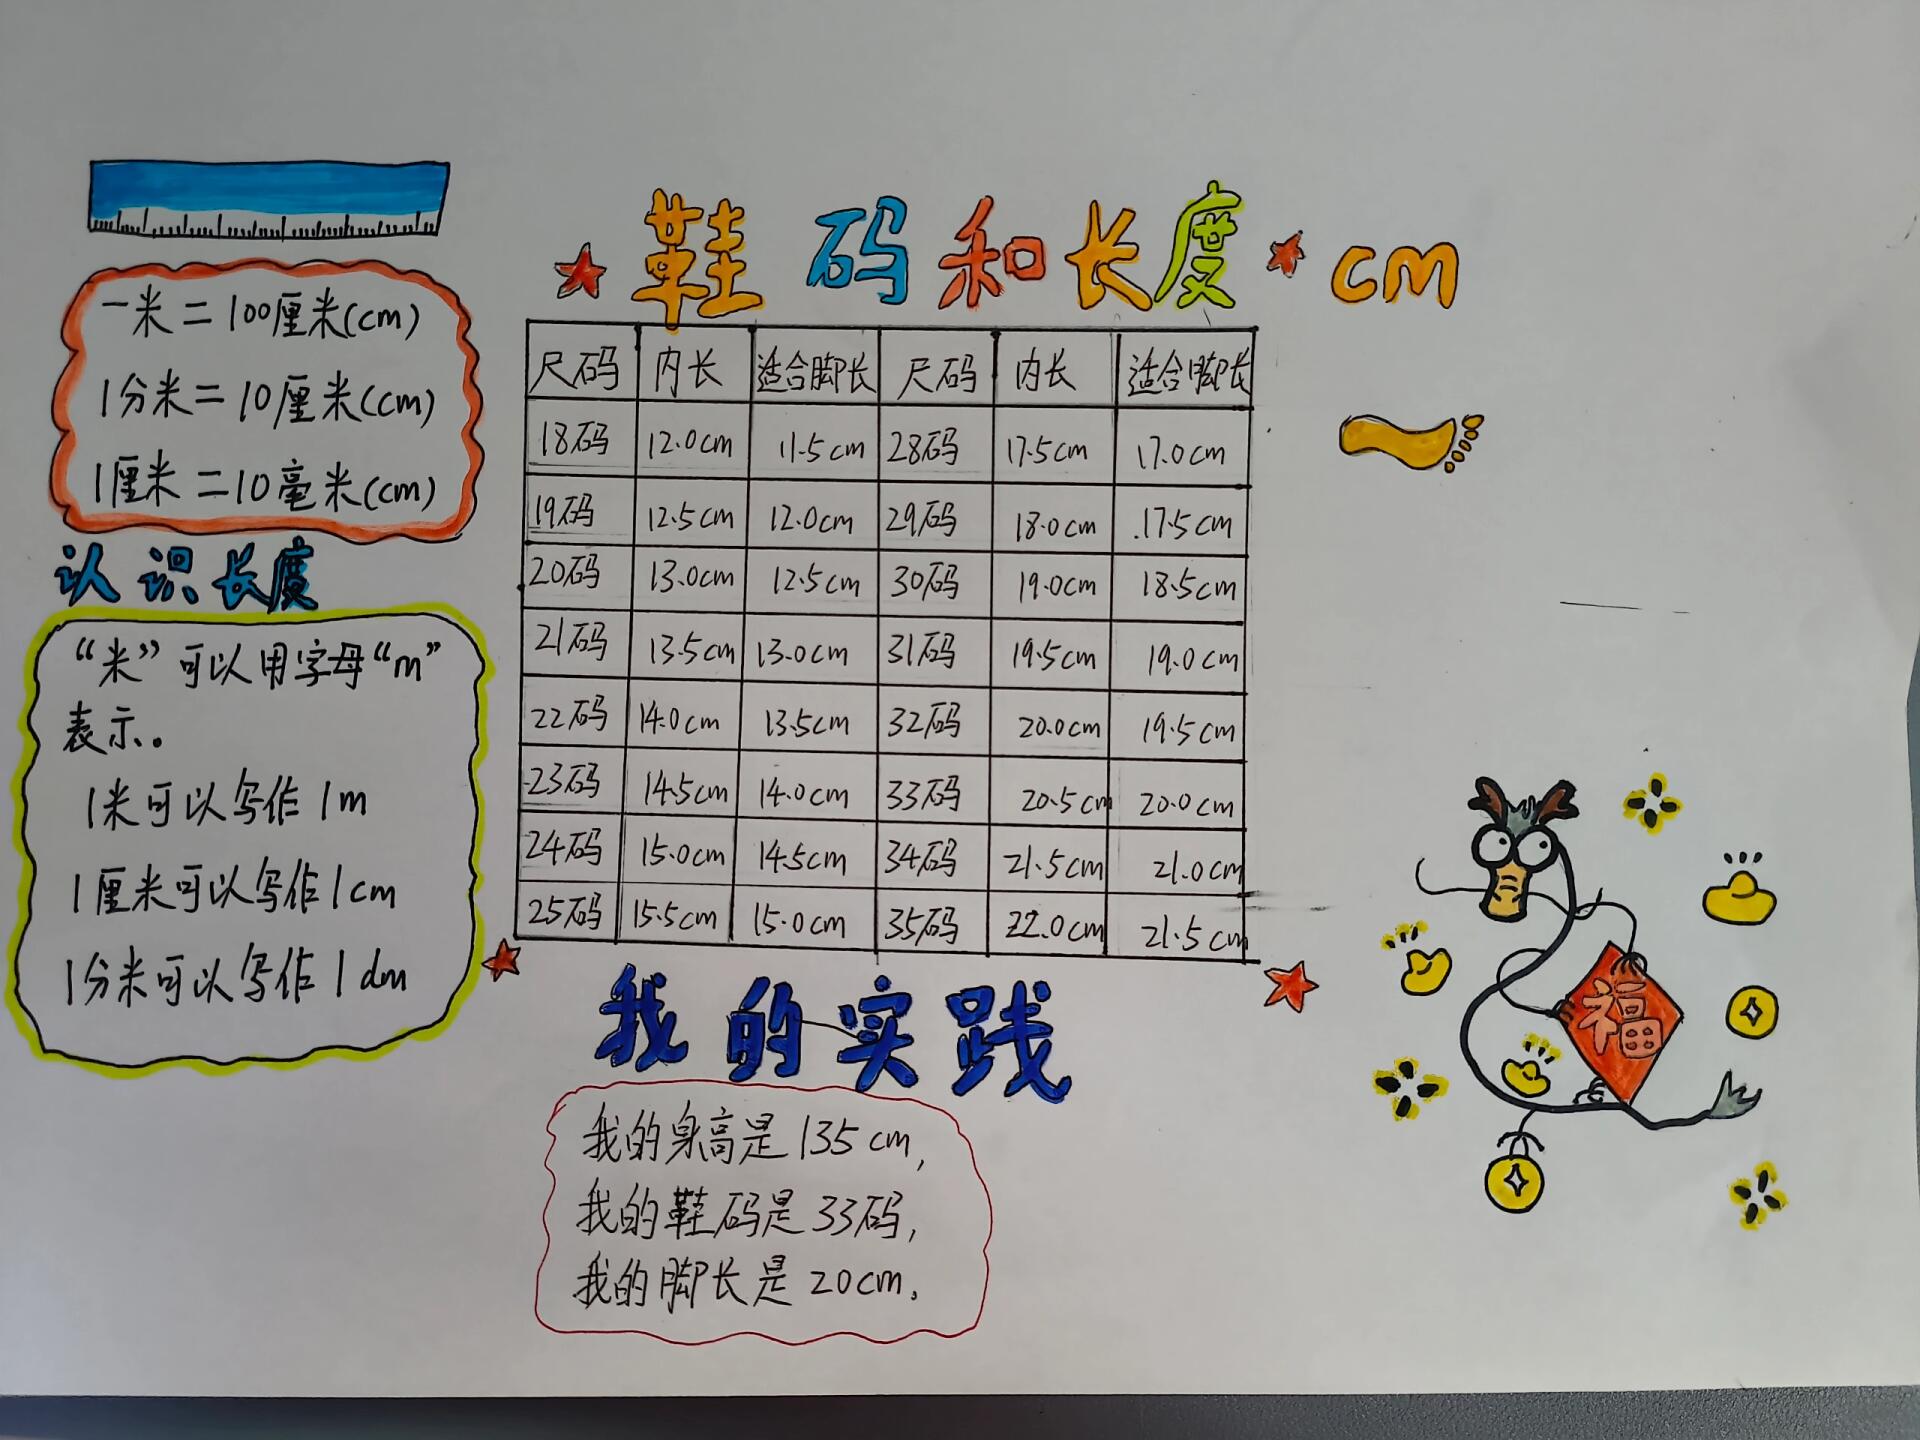 鞋码和长度 cm
一米=100厘米(cm)
1分米=10厘米(cm)
1厘米=10毫米(cm)
认识长度
“米”可以用字母“m”
表示。
1米可以写作1m
1厘米可以写作1cm
1分米可以写作1dm
尺码 内长 适合脚长 尺码 内长 适合脚长
18码 12.0cm 11.5cm 28码 17.5cm 17.0cm
19码 12.5cm 12.0cm 29码 18.0cm 17.5cm
20码 13.0cm 12.5cm 30码 19.0cm 18.5cm
21码 13.5cm 13.0cm 31码 19.5cm 19.0cm
22码 14.0cm 13.5cm 32码 20.0cm 19.5cm
23码 14.5cm 14.0cm 33码 20.5cm 20.0cm
24码 15.0cm 14.5cm 34码 21.5cm 21.0cm
25码 15.5cm 15.0cm 35码 22.0cm 21.5cm
我的实践
我的身高是135cm,
我的鞋码是33码,
我的脚长是20cm。
福